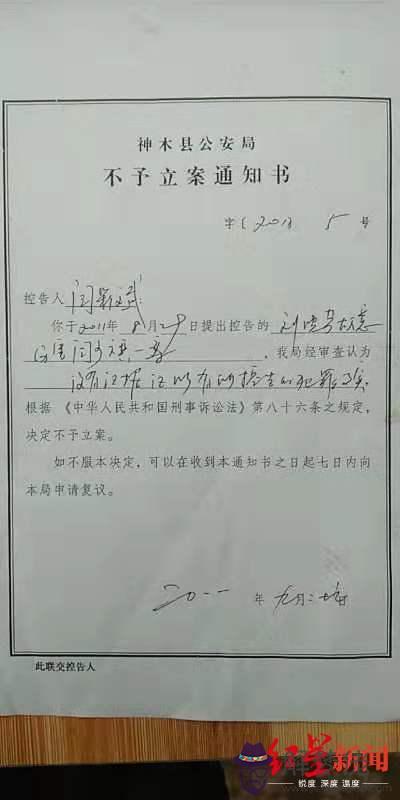 神木县公安局
不予立案通知书
字〔2011 5号
控告人
你于2011年8月29日提出控告的刘
一案，我局经审查认为
没有证据证明有所控告的犯罪事实
根据《中华人民共和国刑事诉讼法》第八十六条之规定，
决定不予立案。
如不服本决定，可以在收到本通知书之日起七日内向
本局申请复议。
二〇一一年九月二
此联交控告人
红星新闻
锐度 深度 温度